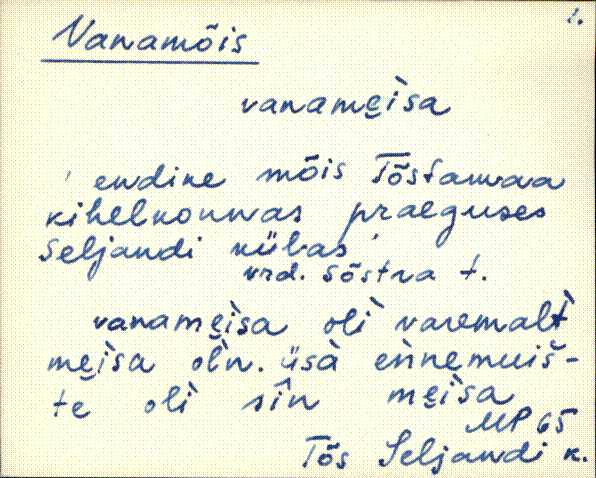 1.
Vanamõis
vaname̮i̬sa
' endine mõis Tõstamaa
kihelkonnas praeguses
Seljandi külas '
vrd. Sõstra t.
vaname̮ìsa olì varemalt̀
me̮ìsa olǹ. üsà eǹnemuiš-
te olì sîn me̮ìsa
MP 65
Tõs Seljandi k.